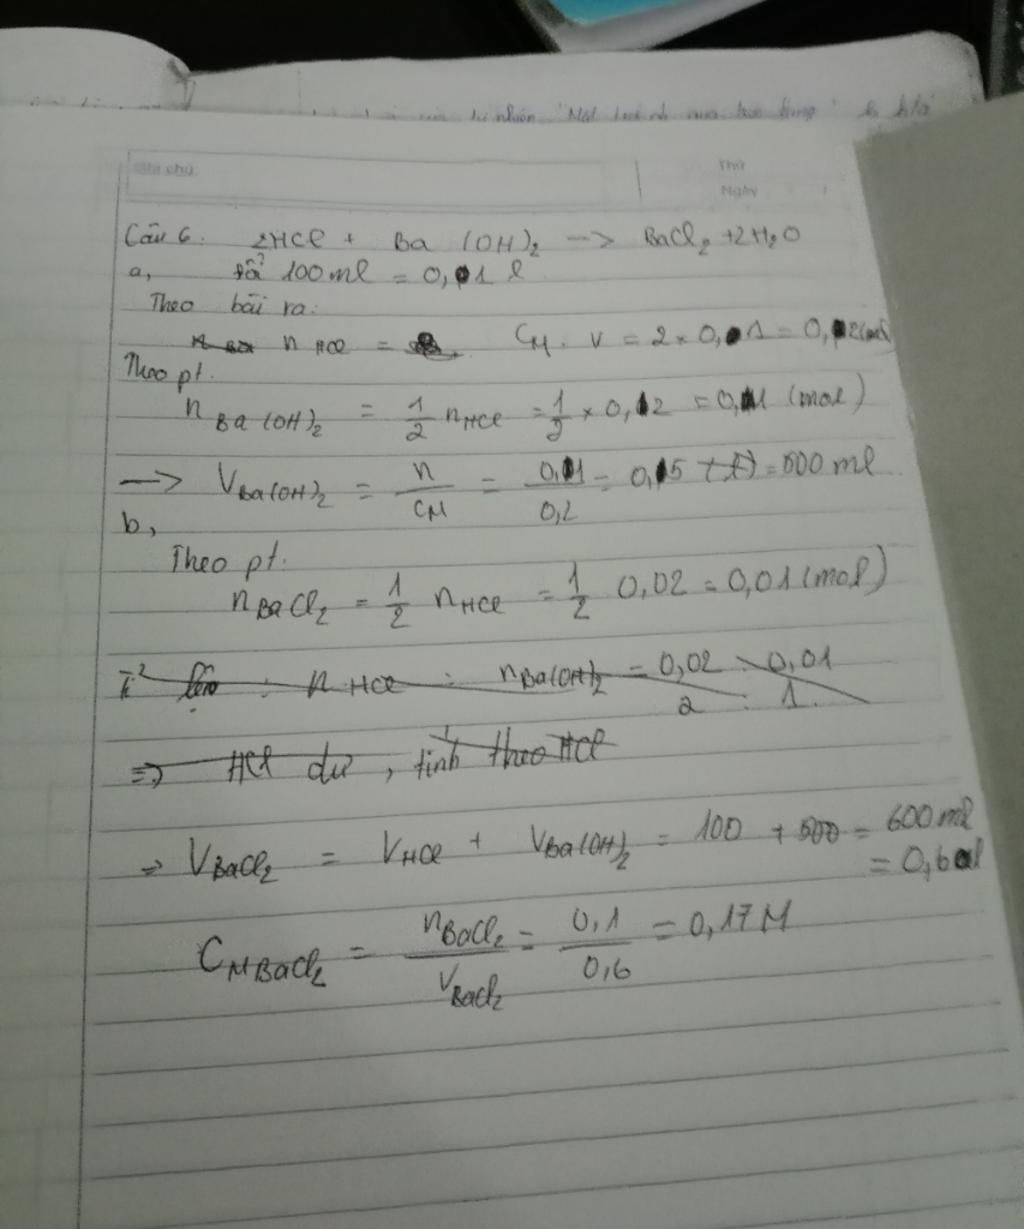 Ghi chú:
Thứ
Ngày
Câu 6. 2HCl + Ba(OH)2 --> BaCl2 + 2H2O
a, Đổi 100ml = 0,1 l
Theo bài ra:
n HCl = CM . V = 2 × 0,1 = 0,2 (mol)
Theo pt.
n Ba(OH)2 = 1/2 nHCl = 1/2 × 0,2 = 0,1 (mol)
--> VBa(OH)2 = n/CM = 0,1/0,2 = 0,5 (l) = 500 ml
b,
Theo pt.
nBaCl2 = 1/2 nHCl = 1/2 0,02 = 0,01 (mol)
Tỉ lệ : n HCl : nBa(OH)2 = 0,02/2 : 0,01/1
=> HCl dư, tính theo HCl
=> VBaCl2 = VHCl + VBa(OH)2 = 100 + 500 = 600 ml
= 0,6 l
CMBaCl2 = nBaCl2/VBaCl2 = 0,1/0,6 = 0,17 M